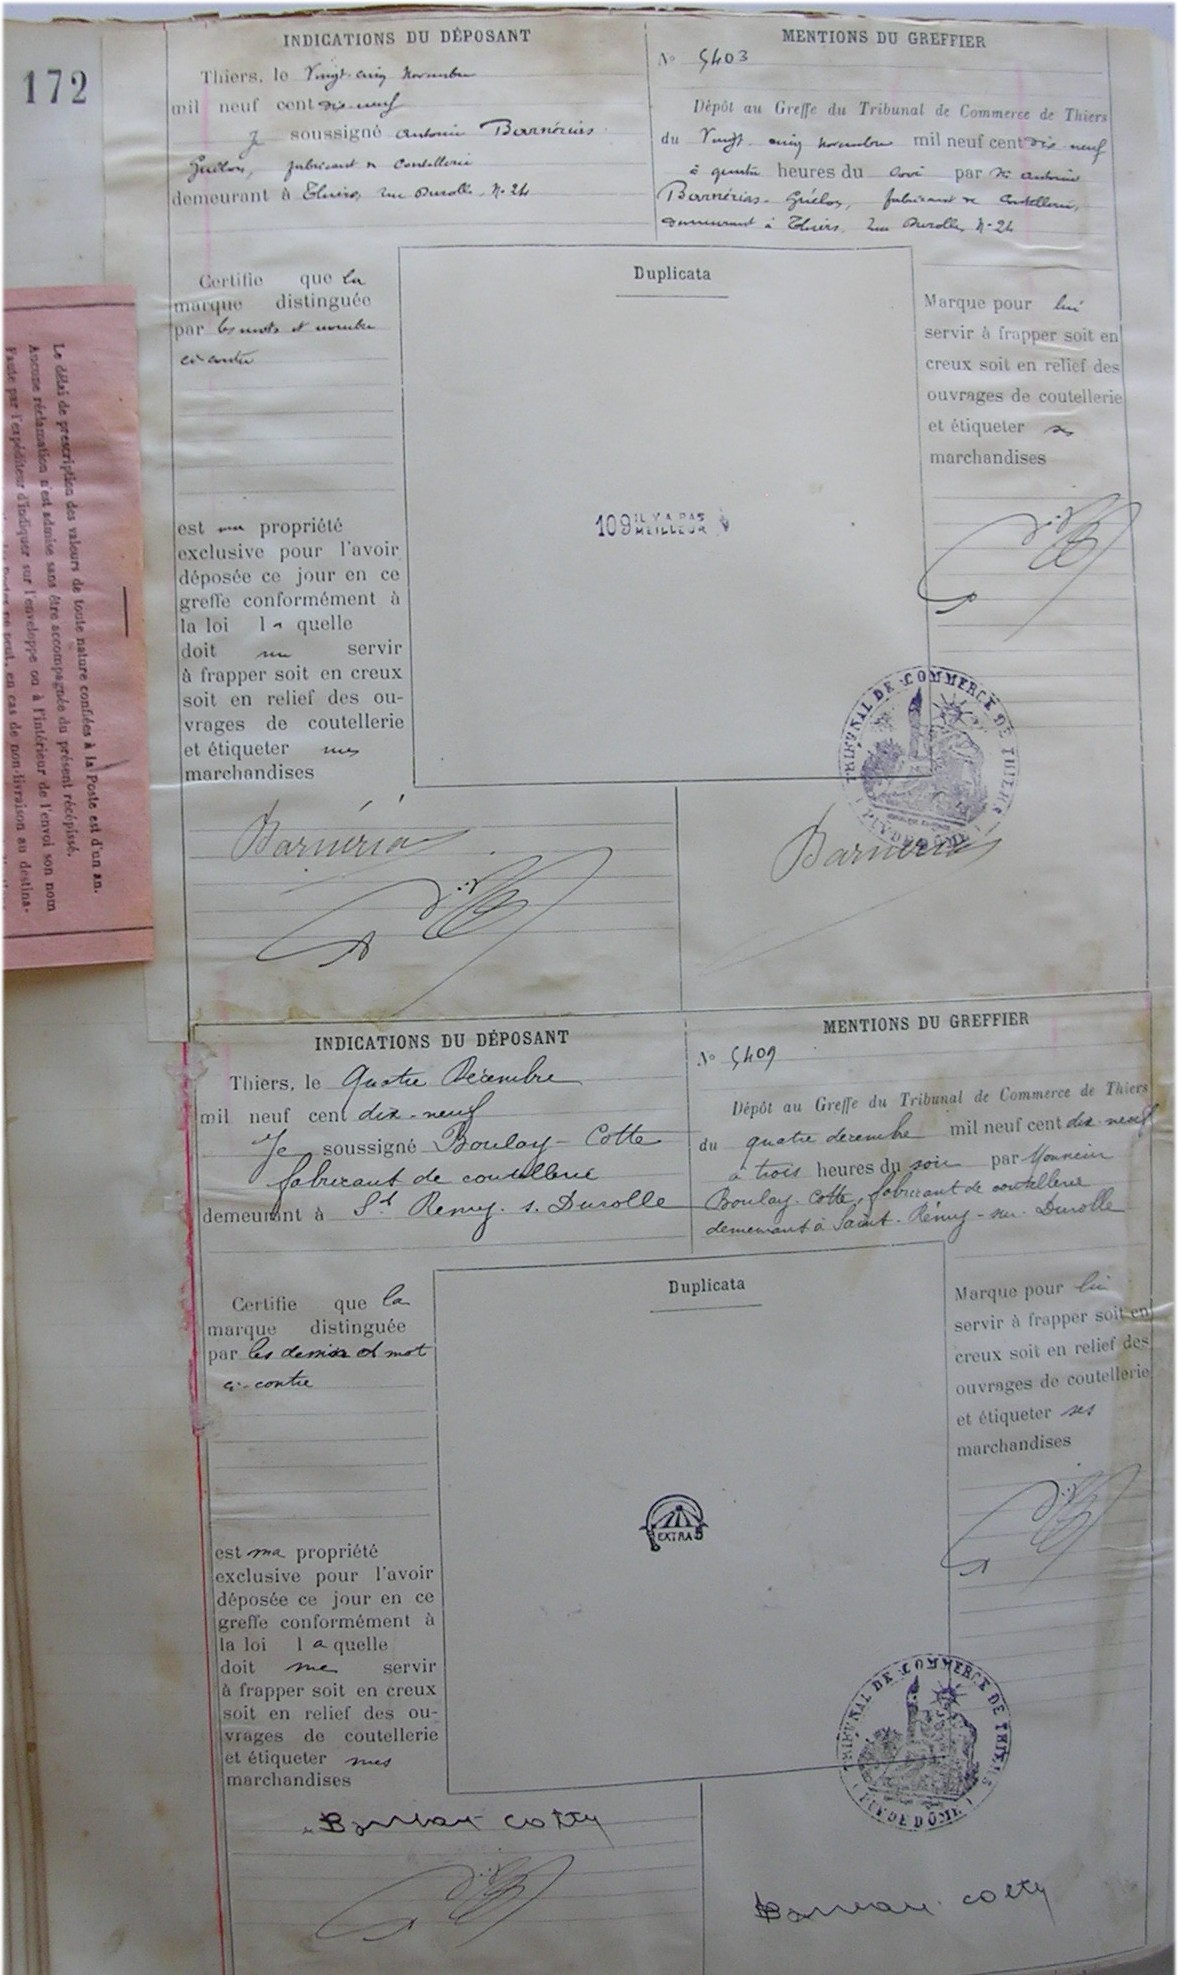 172
INDICATIONS DU DÉPOSANT
Thiers, le Vingt cinq Novembre
mil neuf cent dix-neuf
Je soussigné Antonin Barnérias
Guélon, fabricant de Coutellerie
demeurant à Thiers, rue Durolle, N° 24
MENTIONS DU GREFFIER
N° 5403
Dépôt au Greffe du Tribunal de Commerce de Thiers
du Vingt cinq novembre mil neuf cent dix neuf
à quatre heures du soir par Mr Antonin
Barnérias-Guélon, fabricant de Coutellerie,
demeurant à Thiers, rue Durolle, N° 24
Certifie que la
marque distinguée
par les mots et nombre
ci-contre
est ma propriété
exclusive pour l'avoir
déposée ce jour en ce
greffe conformément à
la loi la quelle
doit me servir
à frapper soit en creux
soit en relief des ou-
vrages de coutellerie
et étiqueter mes
marchandises
Duplicata
109 IL Y A PAS
MEILLEUR
Marque pour lui
servir à frapper soit en
creux soit en relief des
ouvrages de coutellerie
et étiqueter ses
marchandises
TRIBUNAL DE COMMERCE DE THIERS
PUY DE DÔME
Barnérias
Barnérias
Le délai de prescription des valeurs de toute nature confiées à la Poste est d'un an.
Aucune réclamation n'est admise sans être accompagnée du présent récépissé.
Faute par l'expéditeur d'indiquer sur l'enveloppe ou à l'intérieur de l'envoi son nom
en cas de non-livraison au destina-
INDICATIONS DU DÉPOSANT
Thiers, le Quatre Décembre
mil neuf cent dix-neuf
Je soussigné Boulay-Cotte
fabricant de coutellerie
demeurant à St Remy s. Durolle
MENTIONS DU GREFFIER
N° 5409
Dépôt au Greffe du Tribunal de Commerce de Thiers
du quatre décembre mil neuf cent dix-neuf
à trois heures du soir par Monsieur
Boulay-Cotte, fabricant de coutellerie
demeurant à Saint-Rémy-sur-Durolle
Certifie que la
marque distinguée
par les dessin et mot
ci-contre
est ma propriété
exclusive pour l'avoir
déposée ce jour en ce
greffe conformément à
la loi la quelle
doit me servir
à frapper soit en creux
soit en relief des ou-
vrages de coutellerie
et étiqueter mes
marchandises
Duplicata
EXTRA
Marque pour lui
servir à frapper soit en
creux soit en relief des
ouvrages de coutellerie
et étiqueter ses
marchandises
TRIBUNAL DE COMMERCE DE THIERS
PUY DE DÔME